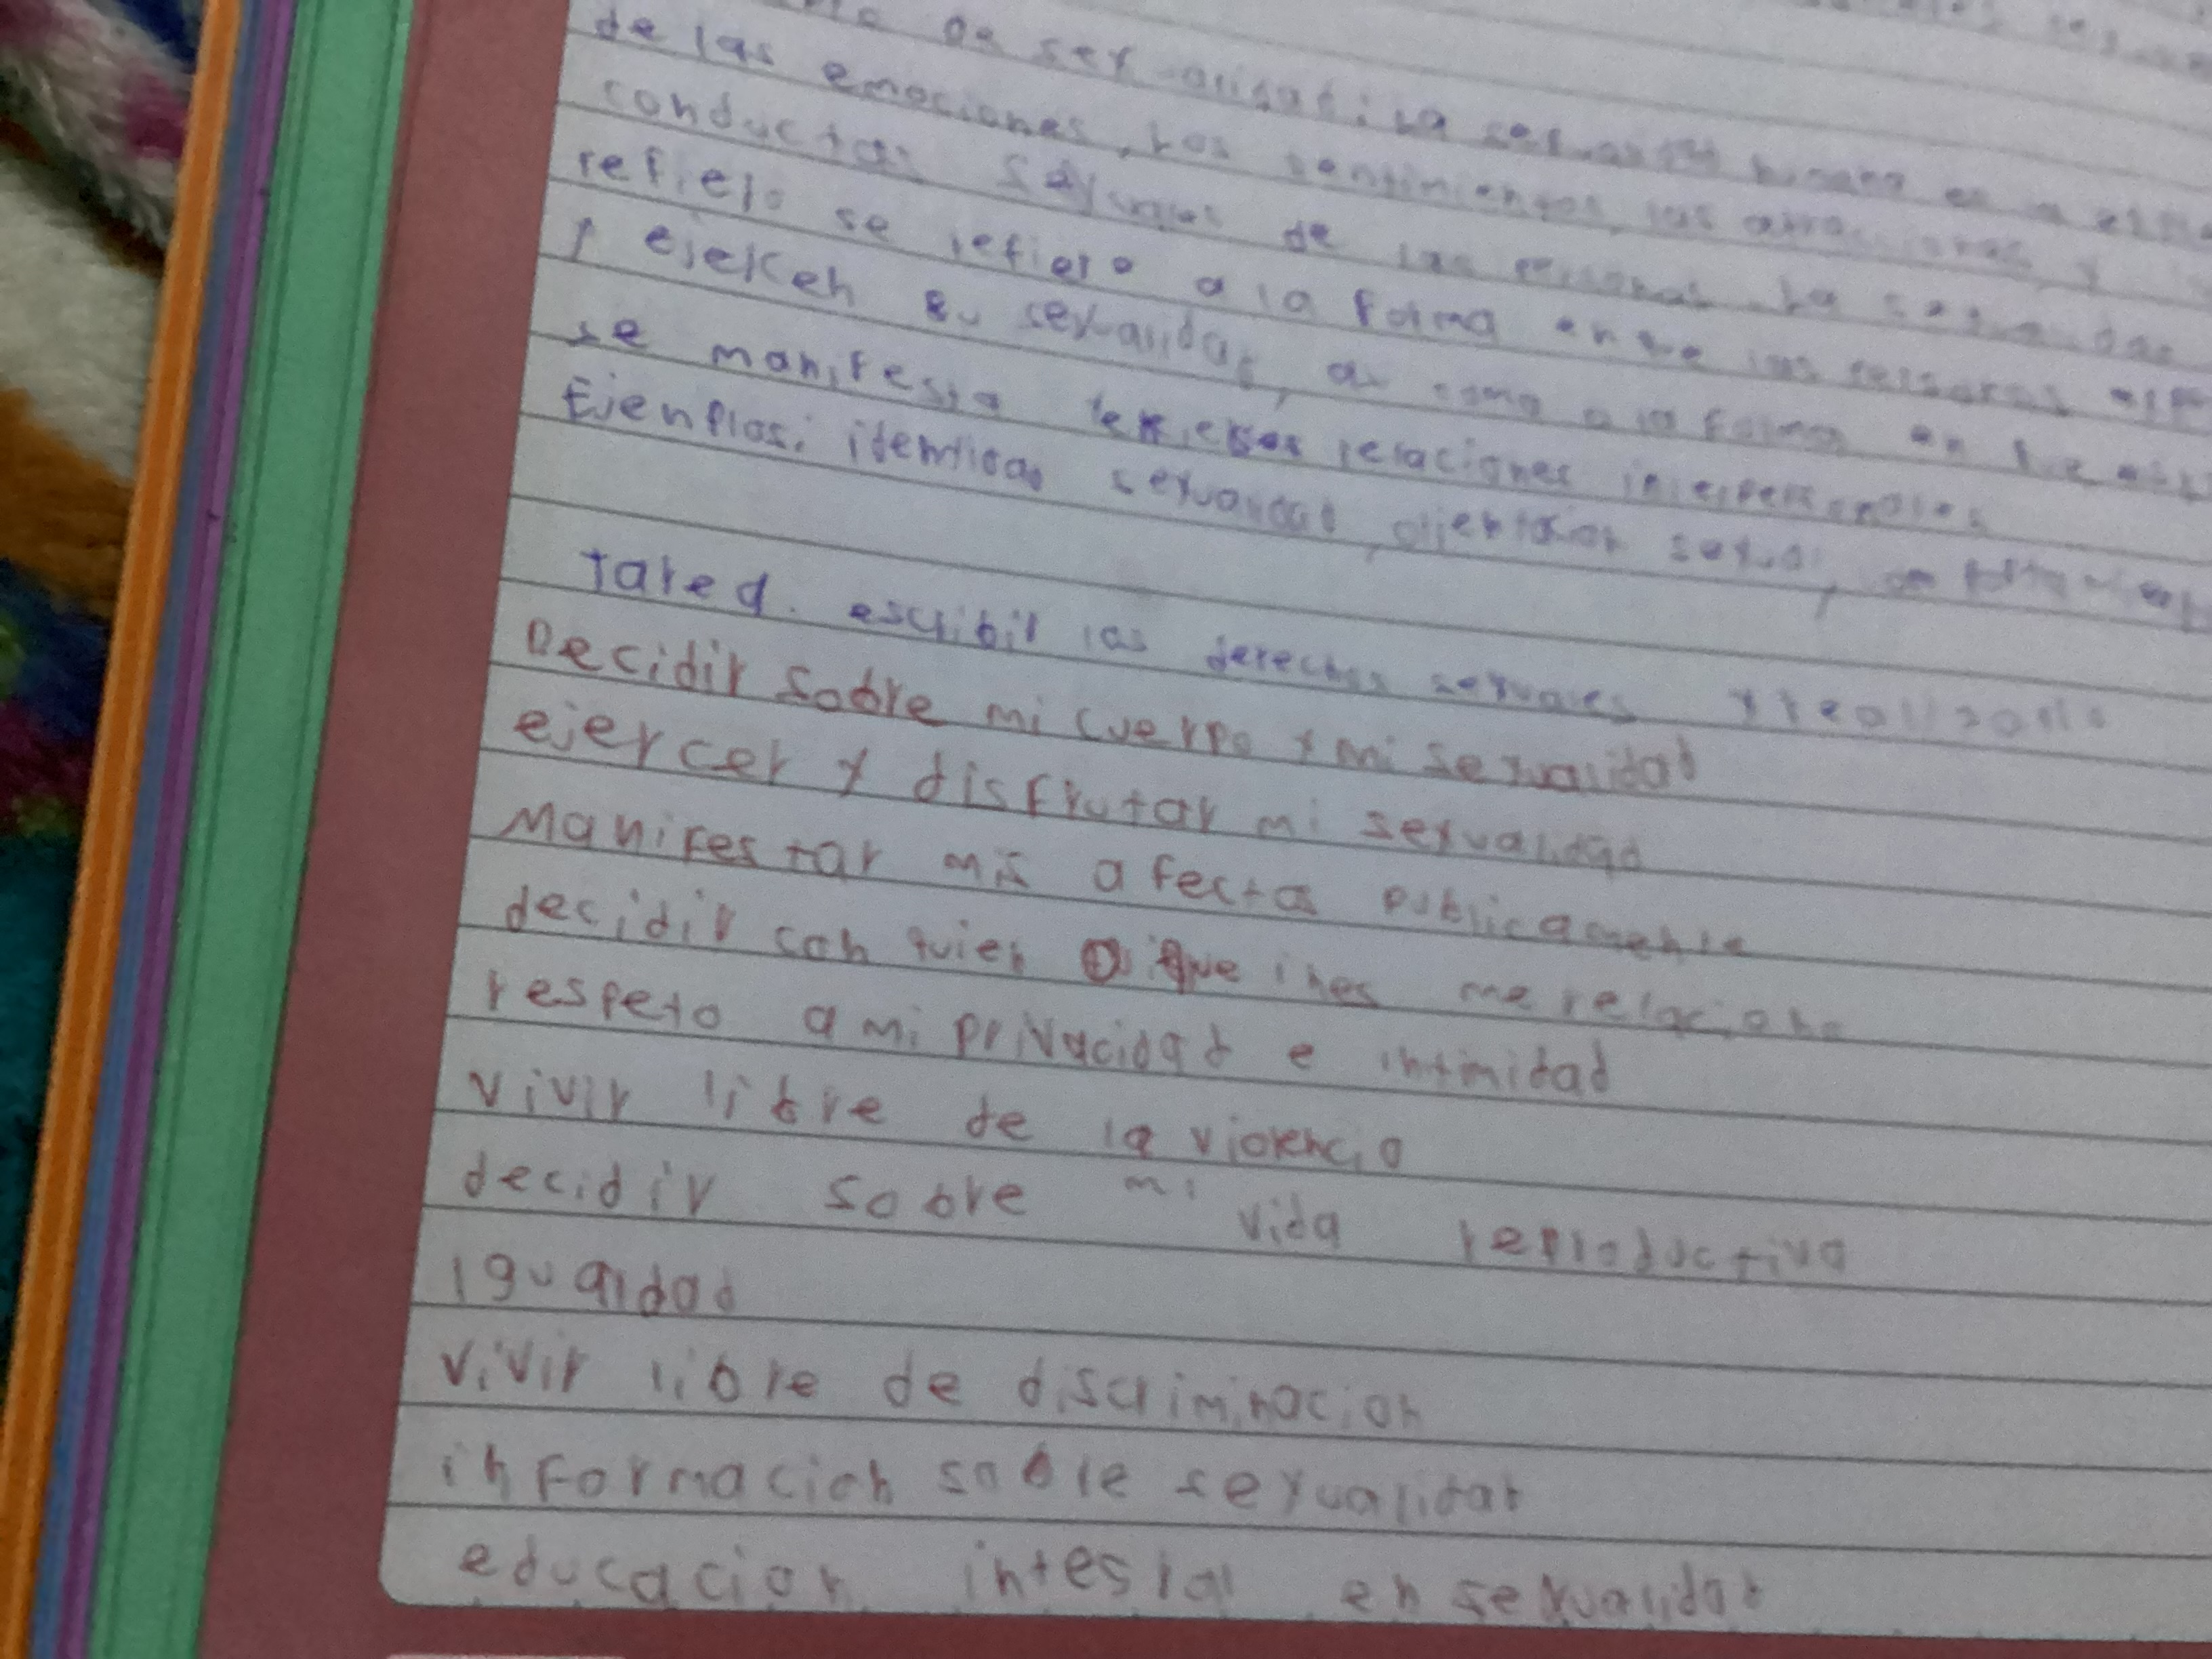 de sexualidad: La sexualidad humana es
de las emociones, los sentimientos, las atracciones y
conductas sexuales de las personas. La sexualidad
refielo se refiero a la forma en que las personas
y ejercen su sexualidad, asi como a la forma en que
se manifesta en sus relaciones interpersonales
Ejenplos: identidad sexualidad, orientacion sexual,
tarea. escribir los derechos sexuales y
Decidir sobre mi cuerpo y mi sexualidad
ejercer y disfrutar mi sexualidad
Manifestar mis afectos publicamente
decidir con quien o quienes me relaciono
respeto a mi privacidad e intimidad
vivir libre de la violencia
decidir sobre mi vida reproductiva
igualdad
vivir libre de discriminacion
informacion sobre sexualidad
educacion integral en sexualidad